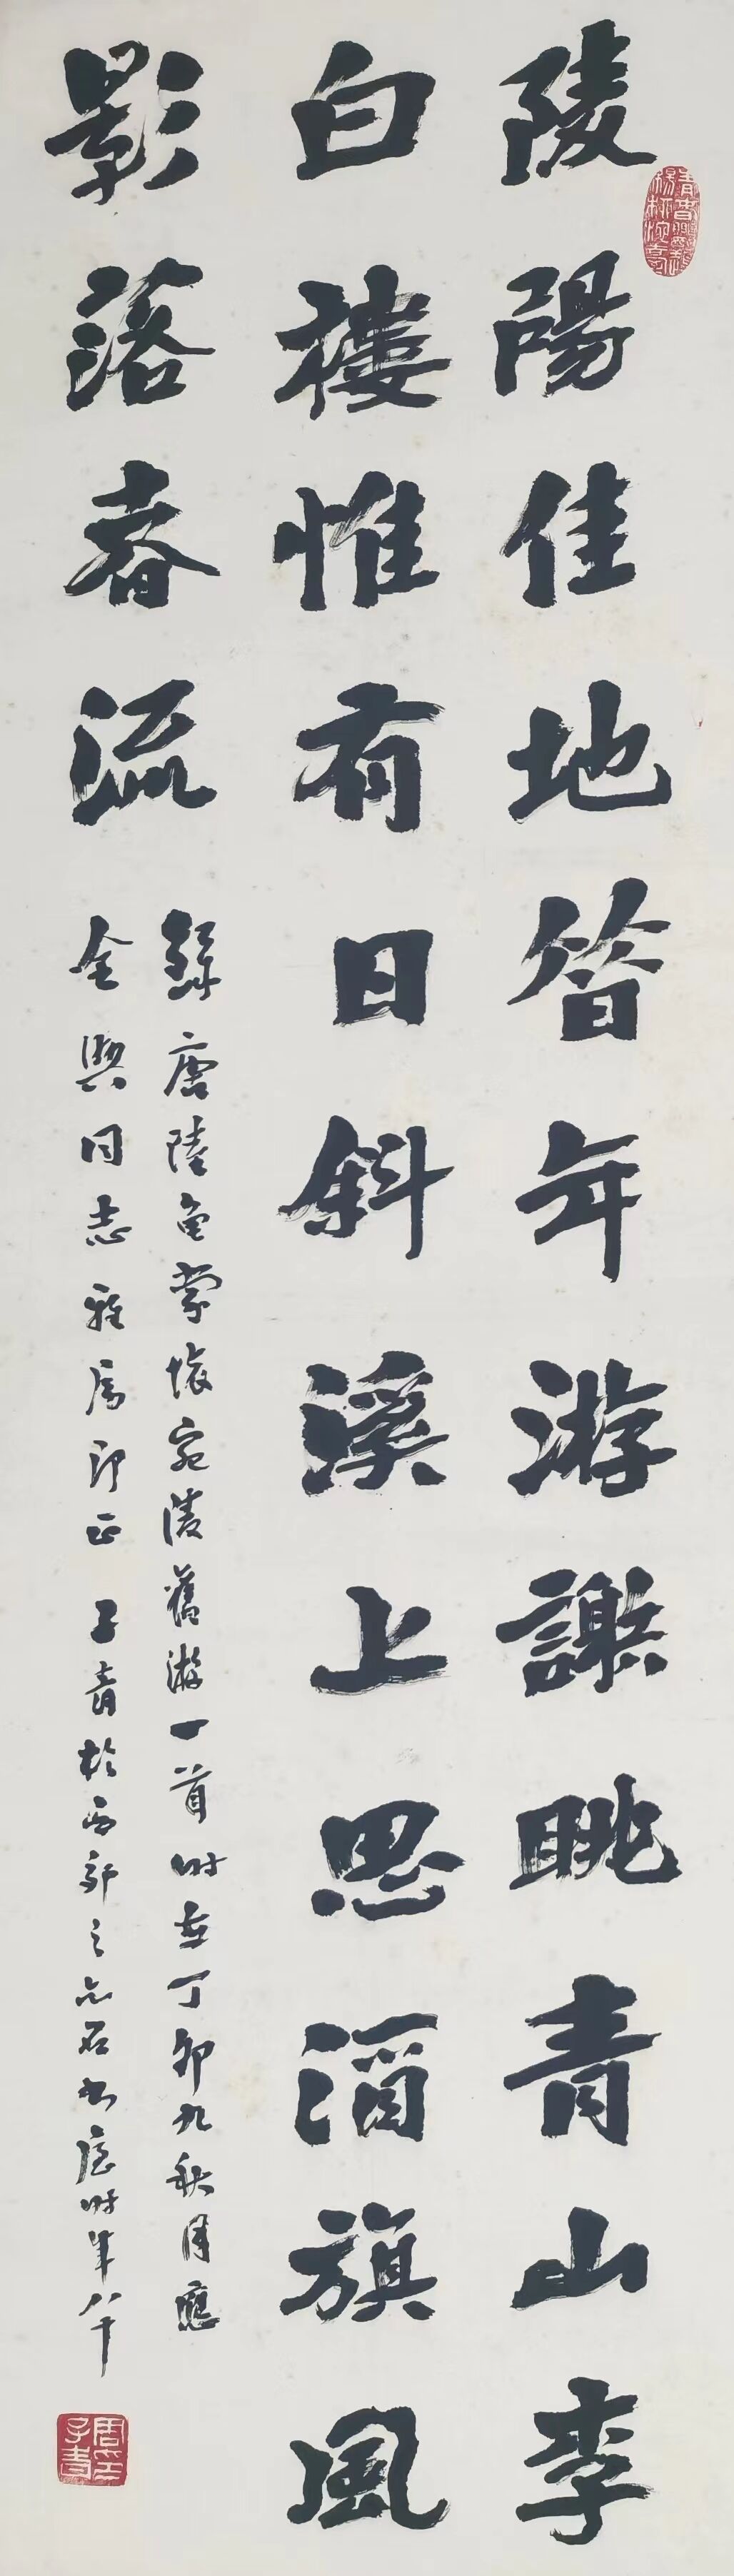 陵陽佳地昝年游謝眺青山李
白樓惟有日斜溪上思酒旗風
影落春流
錄唐陸龜蒙懷宛陵舊游一首時在丁卯九秋月應
金興同志雅屬即正 子青於西郊之亦石書屋時年八十